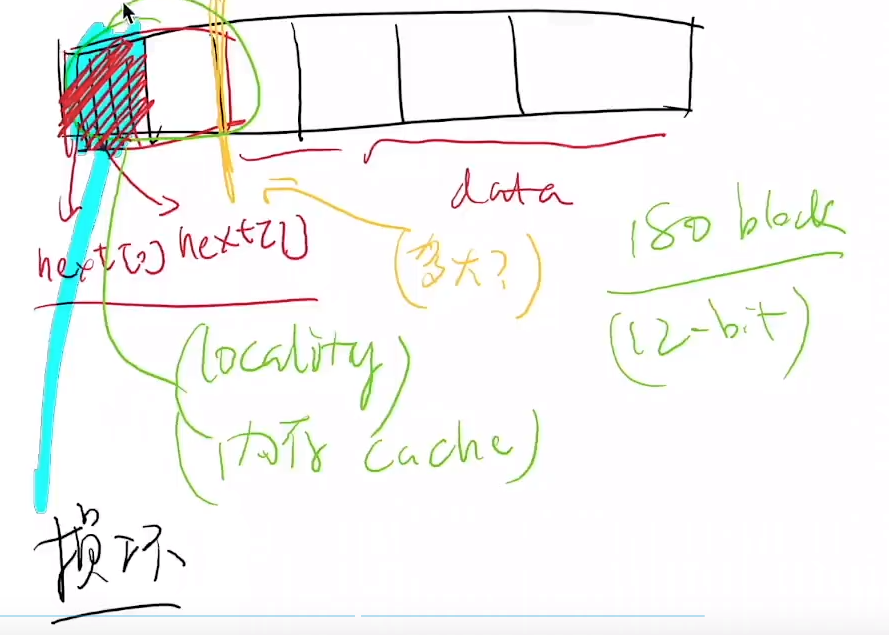 data
next[0] next[1]
(多大?)
180 block
(12-bit)
(locality)
(内存 cache)
损坏